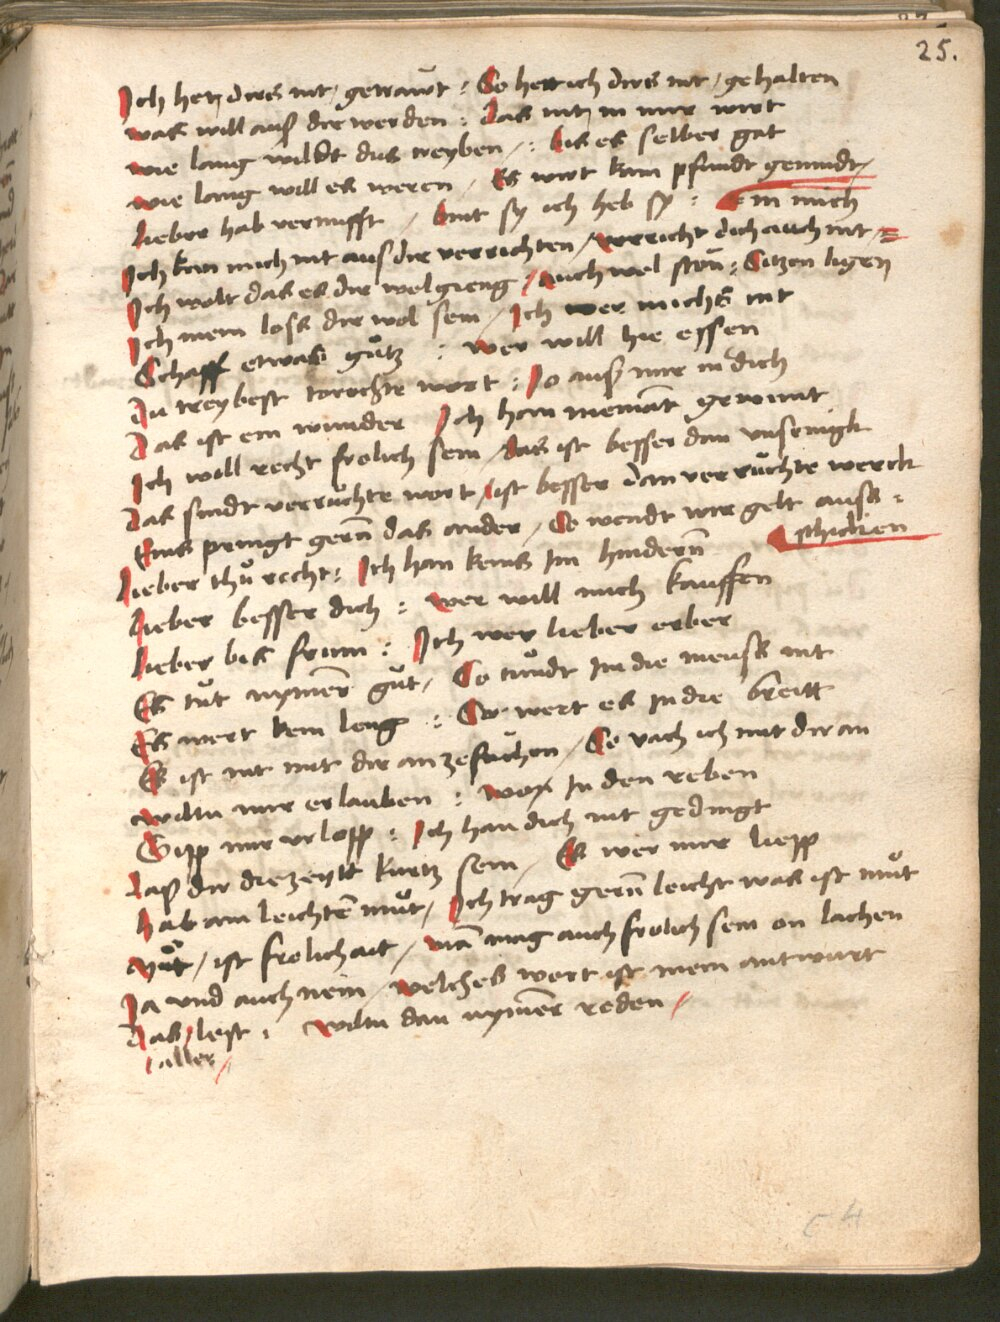 25.
Ich hetz dirs nit / getrawt : So hett ich dirs nit / gehalten
was will auß dir werden : Das nitz in mir wirt
wie lang wildt dus treyben / : bis es selber gat
wie lang will es weren / Es wirt kain pfundt gemindt /
Lieber hab vernufft / bint sy ich heb sy : in mich
Ich kan mich nit aus dir verrichten / verricht dich auch nit /
Ich wolt das es dir wol gieng / Auch wol ston : Sitzen ligen
Ich mein losk dir wol sein / Ich wer michs nit
Schaff etwas gůtz : wer will hie essen
Du treybest torochte wort : Jo auß mir in dich
Das ist ein wunder Ich han niemāt gewunt
Ich will recht frolich sein / das ist besser dan unsinigk
Das sindt verrůchte wort / ist besser dan verrůchte werck
Eins pringt gern̄ das ander / So wendt wir gelt aus :
schicken
Lieber thů recht : Ich han keins Im hindern̄
Lieber besser dich : wer will mich kauffen
Lieber bis frum : Ich wer lieber erber
Es tůt nymēr gůt / So tůndt Im die meus nit
Es wert kein leng : So wert es In die breitt
Es ist nit mit dir anzefachen / So vach ich mit dir an
wiltu mir erlauben : wox In den reben
Gipp mir urlopp : Ich han dich nit gedingt
Laß dir die zeytt kurtz sein / Es wer mir liepp
hab ain leichtē můt / Ich trag gern̄ leicht was ist můt
Můt / ist frolichait / mā mag auch frolich sein on lachen
Ja und auch nein / welches wort ist mein antwurt
Das lest : wiltu dan nymēr reden /
aller /